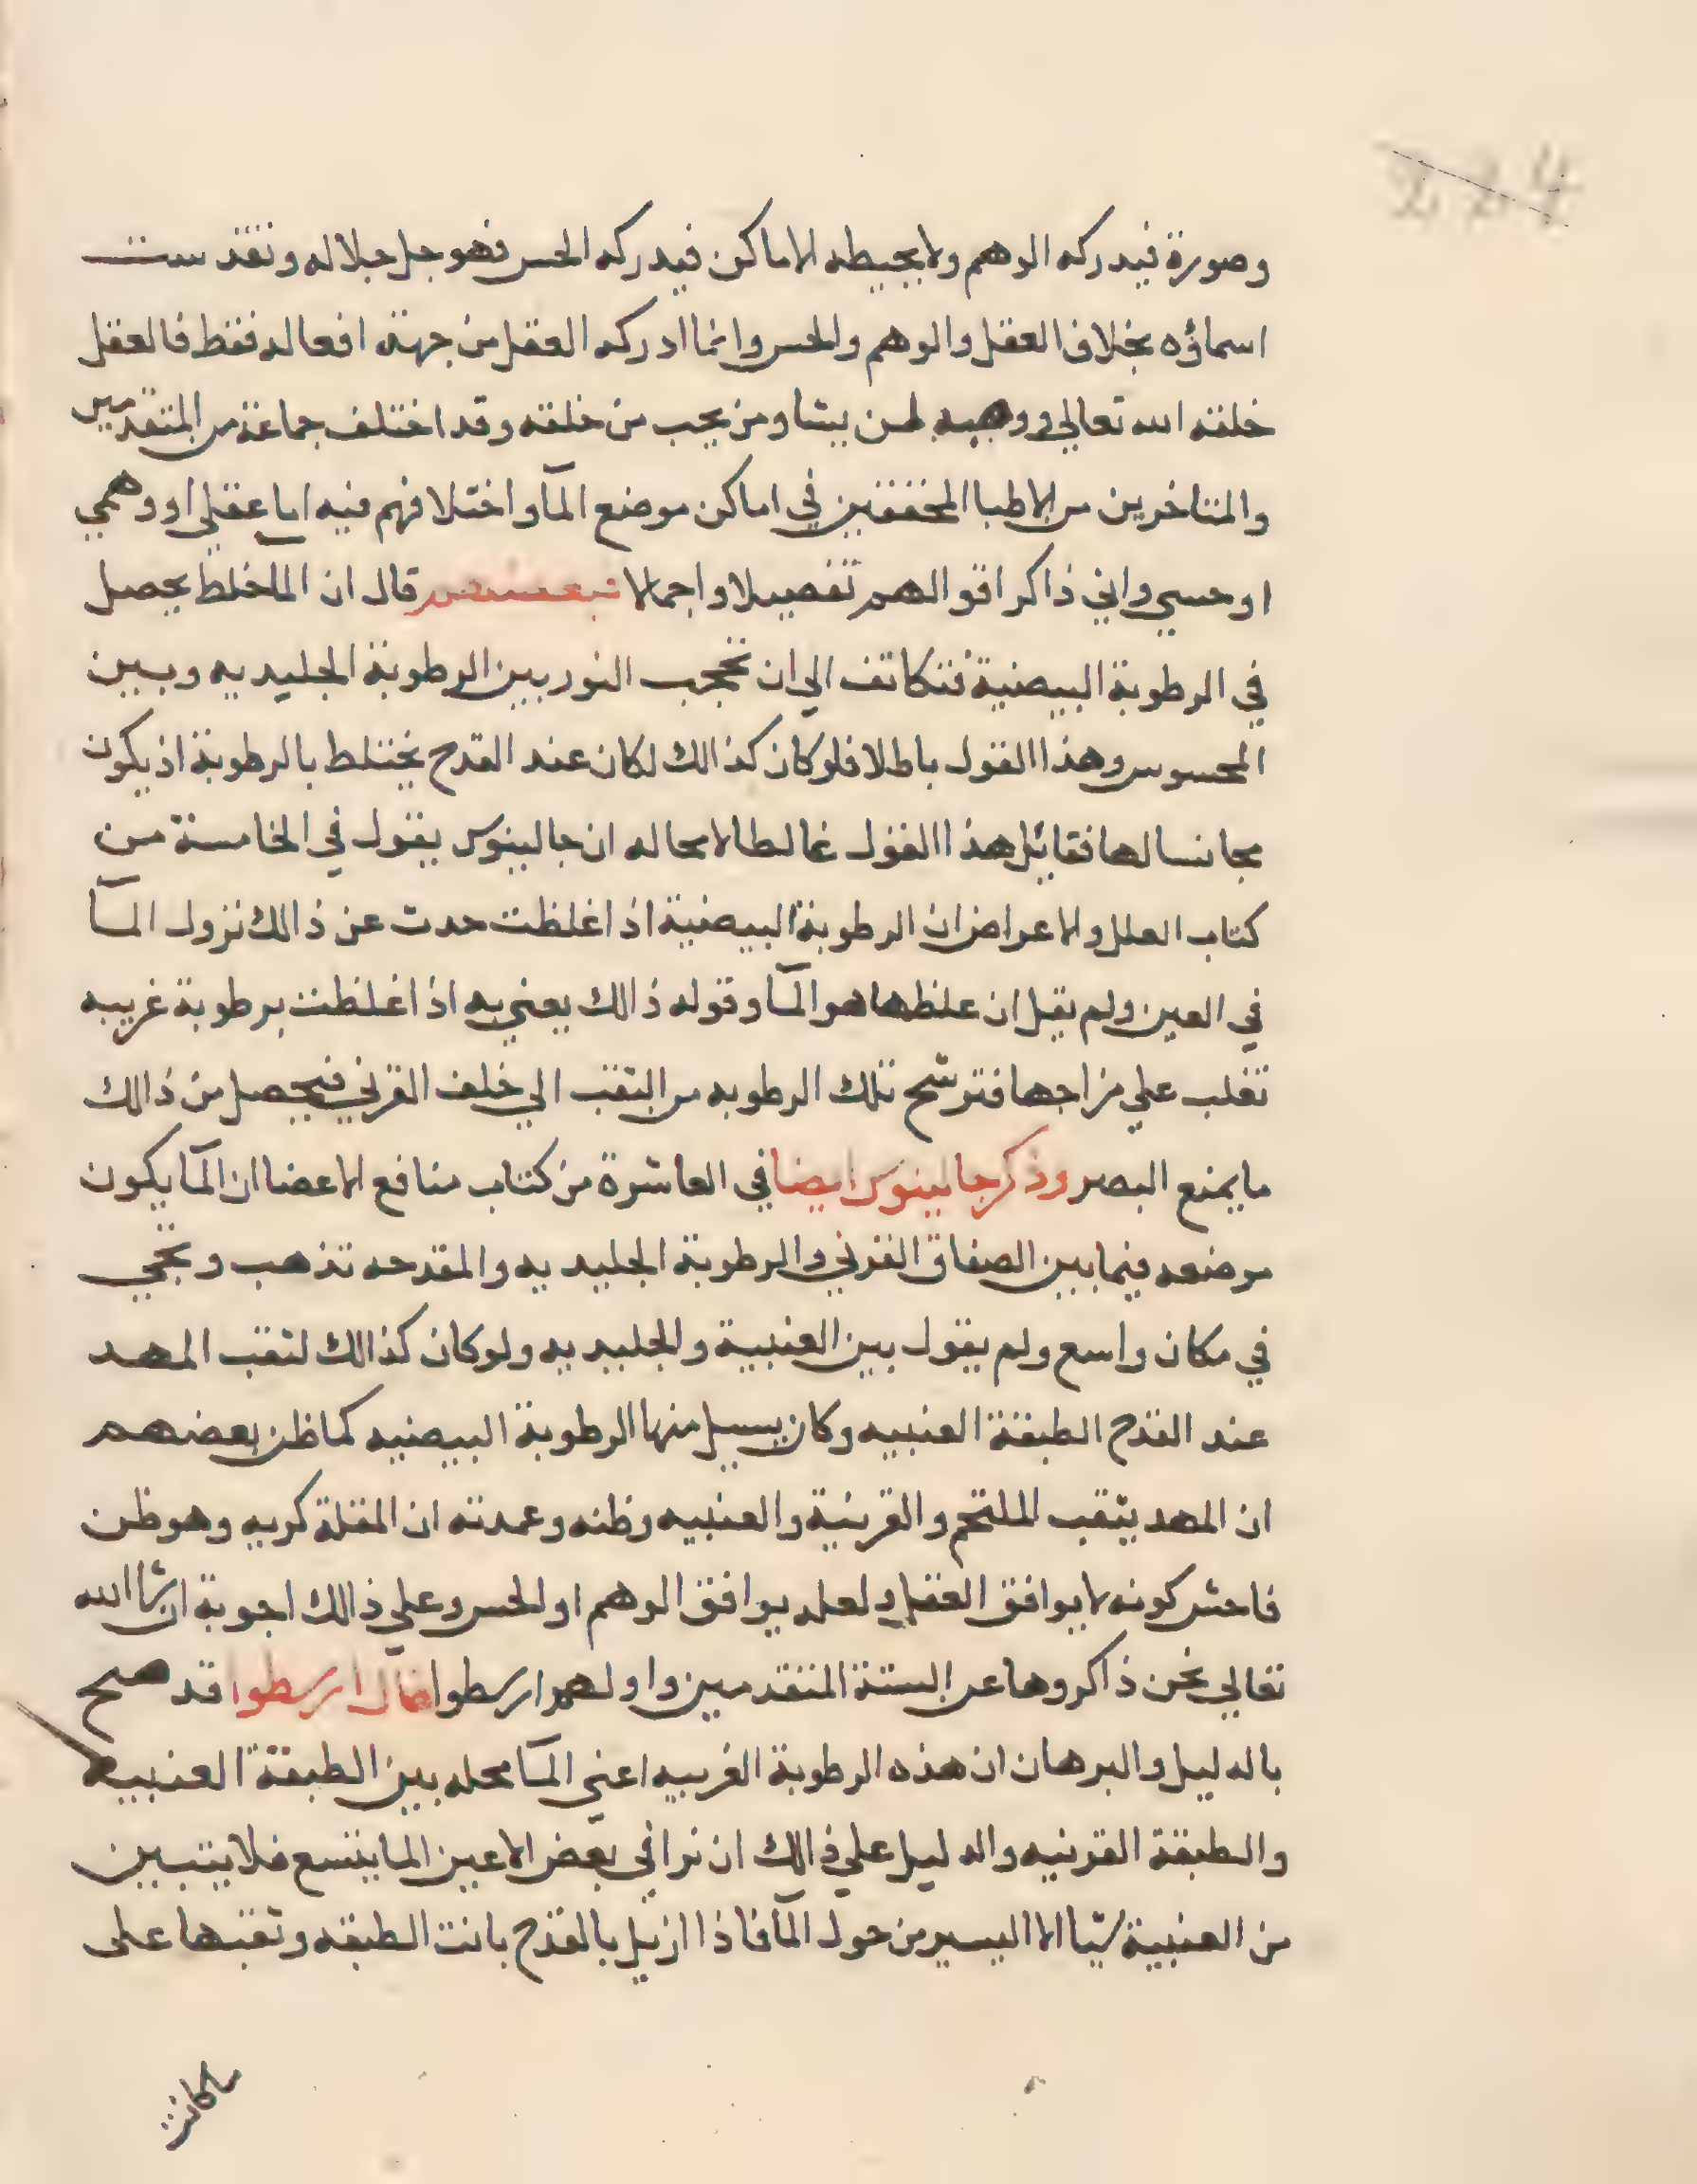 وصورة فيدركه الوهم ولا يحيطه الاماكن فيدركه الحس فهو جل جلاله وتقدست
اسماؤه بخلاف العقل والوهم والحس وانما ادركه العقل من جهة افعاله فقط فالعقل
خلقه الله تعالي ووهبه لمن يشا ومن يحب من خلقه وقد اختلف جماعة من المتقدمين
والمتاخرين من الاطبا المحققين في اماكن موضع المآ واختلافهم فيه اما عقلي او وهمي
او حسي واني ذاكر اقوالهم تفصيلا واجمالا فبعضهم قال ان الما خلط يحصل
في الرطوبة البيضية فتتكاثف الي ان تحجب النور بين الرطوبة الجليديه وبين
المحسوس وهذا القول باطلا فلو كان كذالك لكان عند القدح يختلط بالرطوبة اذ يكون
مجانسا لها فقائل هذا القول غالطا لا محاله ان جالينوس يقول في الخامسة من
كتاب العلل والاعراض ان الرطوبة البيضية اذا غلظت حدث عن ذالك نزول المآ
في العين ولم يقل ان غلظها هو المآ وقوله ذالك يعني به اذا غلظت برطوبة غريبه
تغلب علي مزاجها فترشح تلك الرطوبه من الثقب الي خلف القرني فيحصل من ذالك
ما يمنع البصر وذكر جالينوس ايضا في العاشرة من كتاب منافع الاعضا ان المآ يكون
موضعه فيما بين الصفاق القرني والرطوبة الجليديه والمقدحه تذهب وتجي
في مكان واسع ولم يقول بين العنبية والجليديه ولو كان كذالك لثقب المهد
عند القدح الطبقة العنبيه وكان يسيل منها الرطوبة البيضيه كما ظن بعضهم
ان المهد يثقب الملتحم والقرنية والعنبيه وظنه وعمدته ان المقلة كريه وهو ظن
فاحش كونه لا يوافق العقل ولعله يوافق الوهم او الحس وعلي ذالك اجوبة ان شا الله
تعالي نحن ذاكروها عن الستة المتقدمين واولهم ارسطوا فقال ارسطوا قد صح
بالدليل والبرهان ان هذه الرطوبة الغريبه اعني المآ محله بين الطبقة العنبيه
والطبقة القرنيه والدليل علي ذالك ان نرا في بعض الاعين الما يتسع فلا يتبين
من العنبية شيا الا اليسير من حول المآ فاذا ازيل بالقدح بانت الطبقه وثقبها على
ماكانت